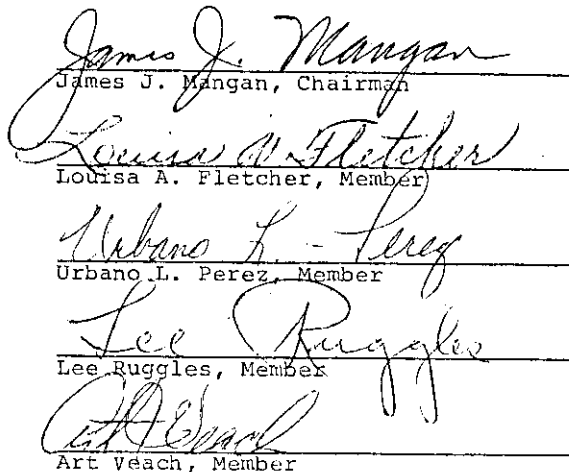 James J. Mangan
James J. Mangan, Chairman
Louisa A. Fletcher
Louisa A. Fletcher, Member
Urbano L. Perez
Urbano L. Perez, Member
Lee Ruggles
Lee Ruggles, Member
Art Veach
Art Veach, Member